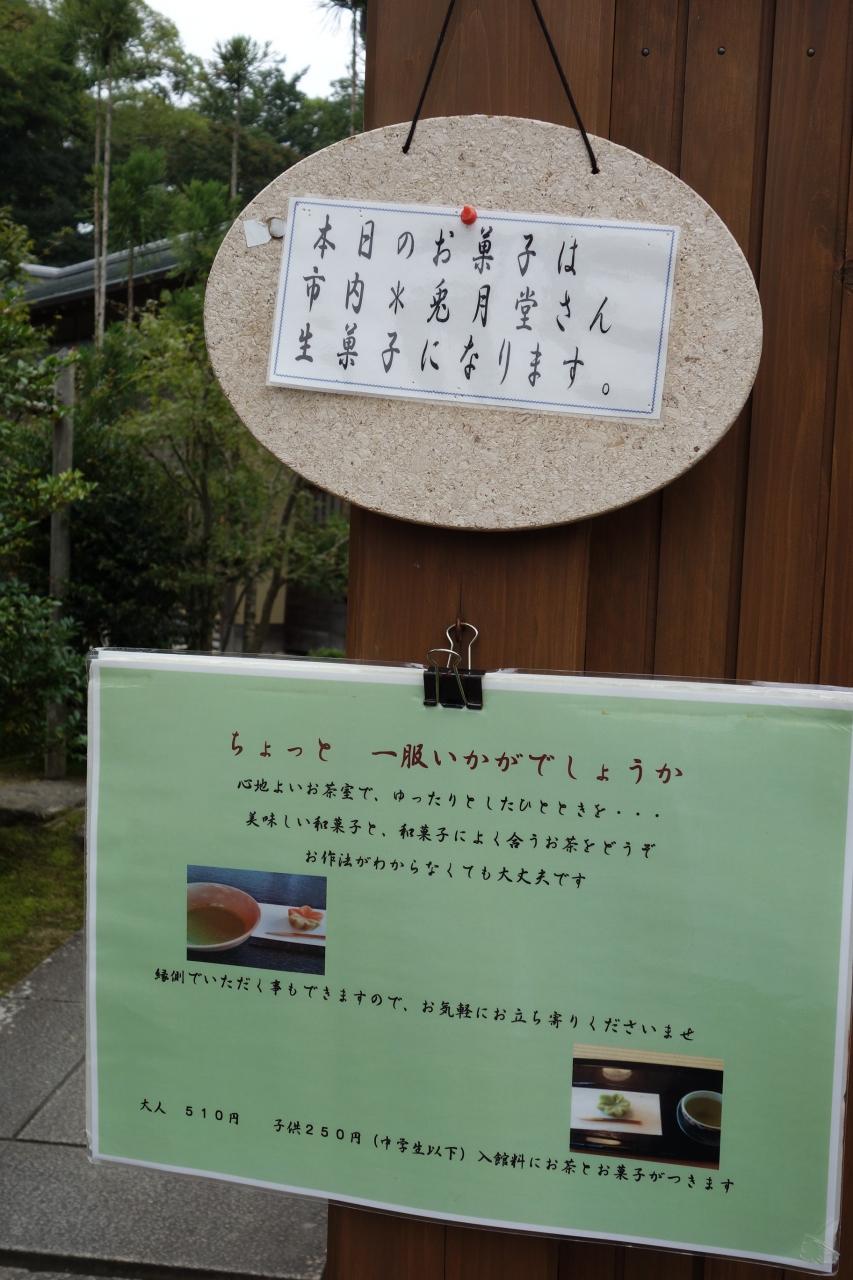 本日のお菓子は
市内 水 兎月堂さん
生菓子になります。
ちょっと 一服いかがでしょうか
心地よいお茶室で、ゆったりとしたひとときを・・・
美味しい和菓子と、和菓子によく合うお茶をどうぞ
お作法がわからなくても大丈夫です
縁側でいただく事もできますので、お気軽にお立ち寄りくださいませ
大人 510円 子供250円（中学生以下）入館料にお茶とお菓子がつきます